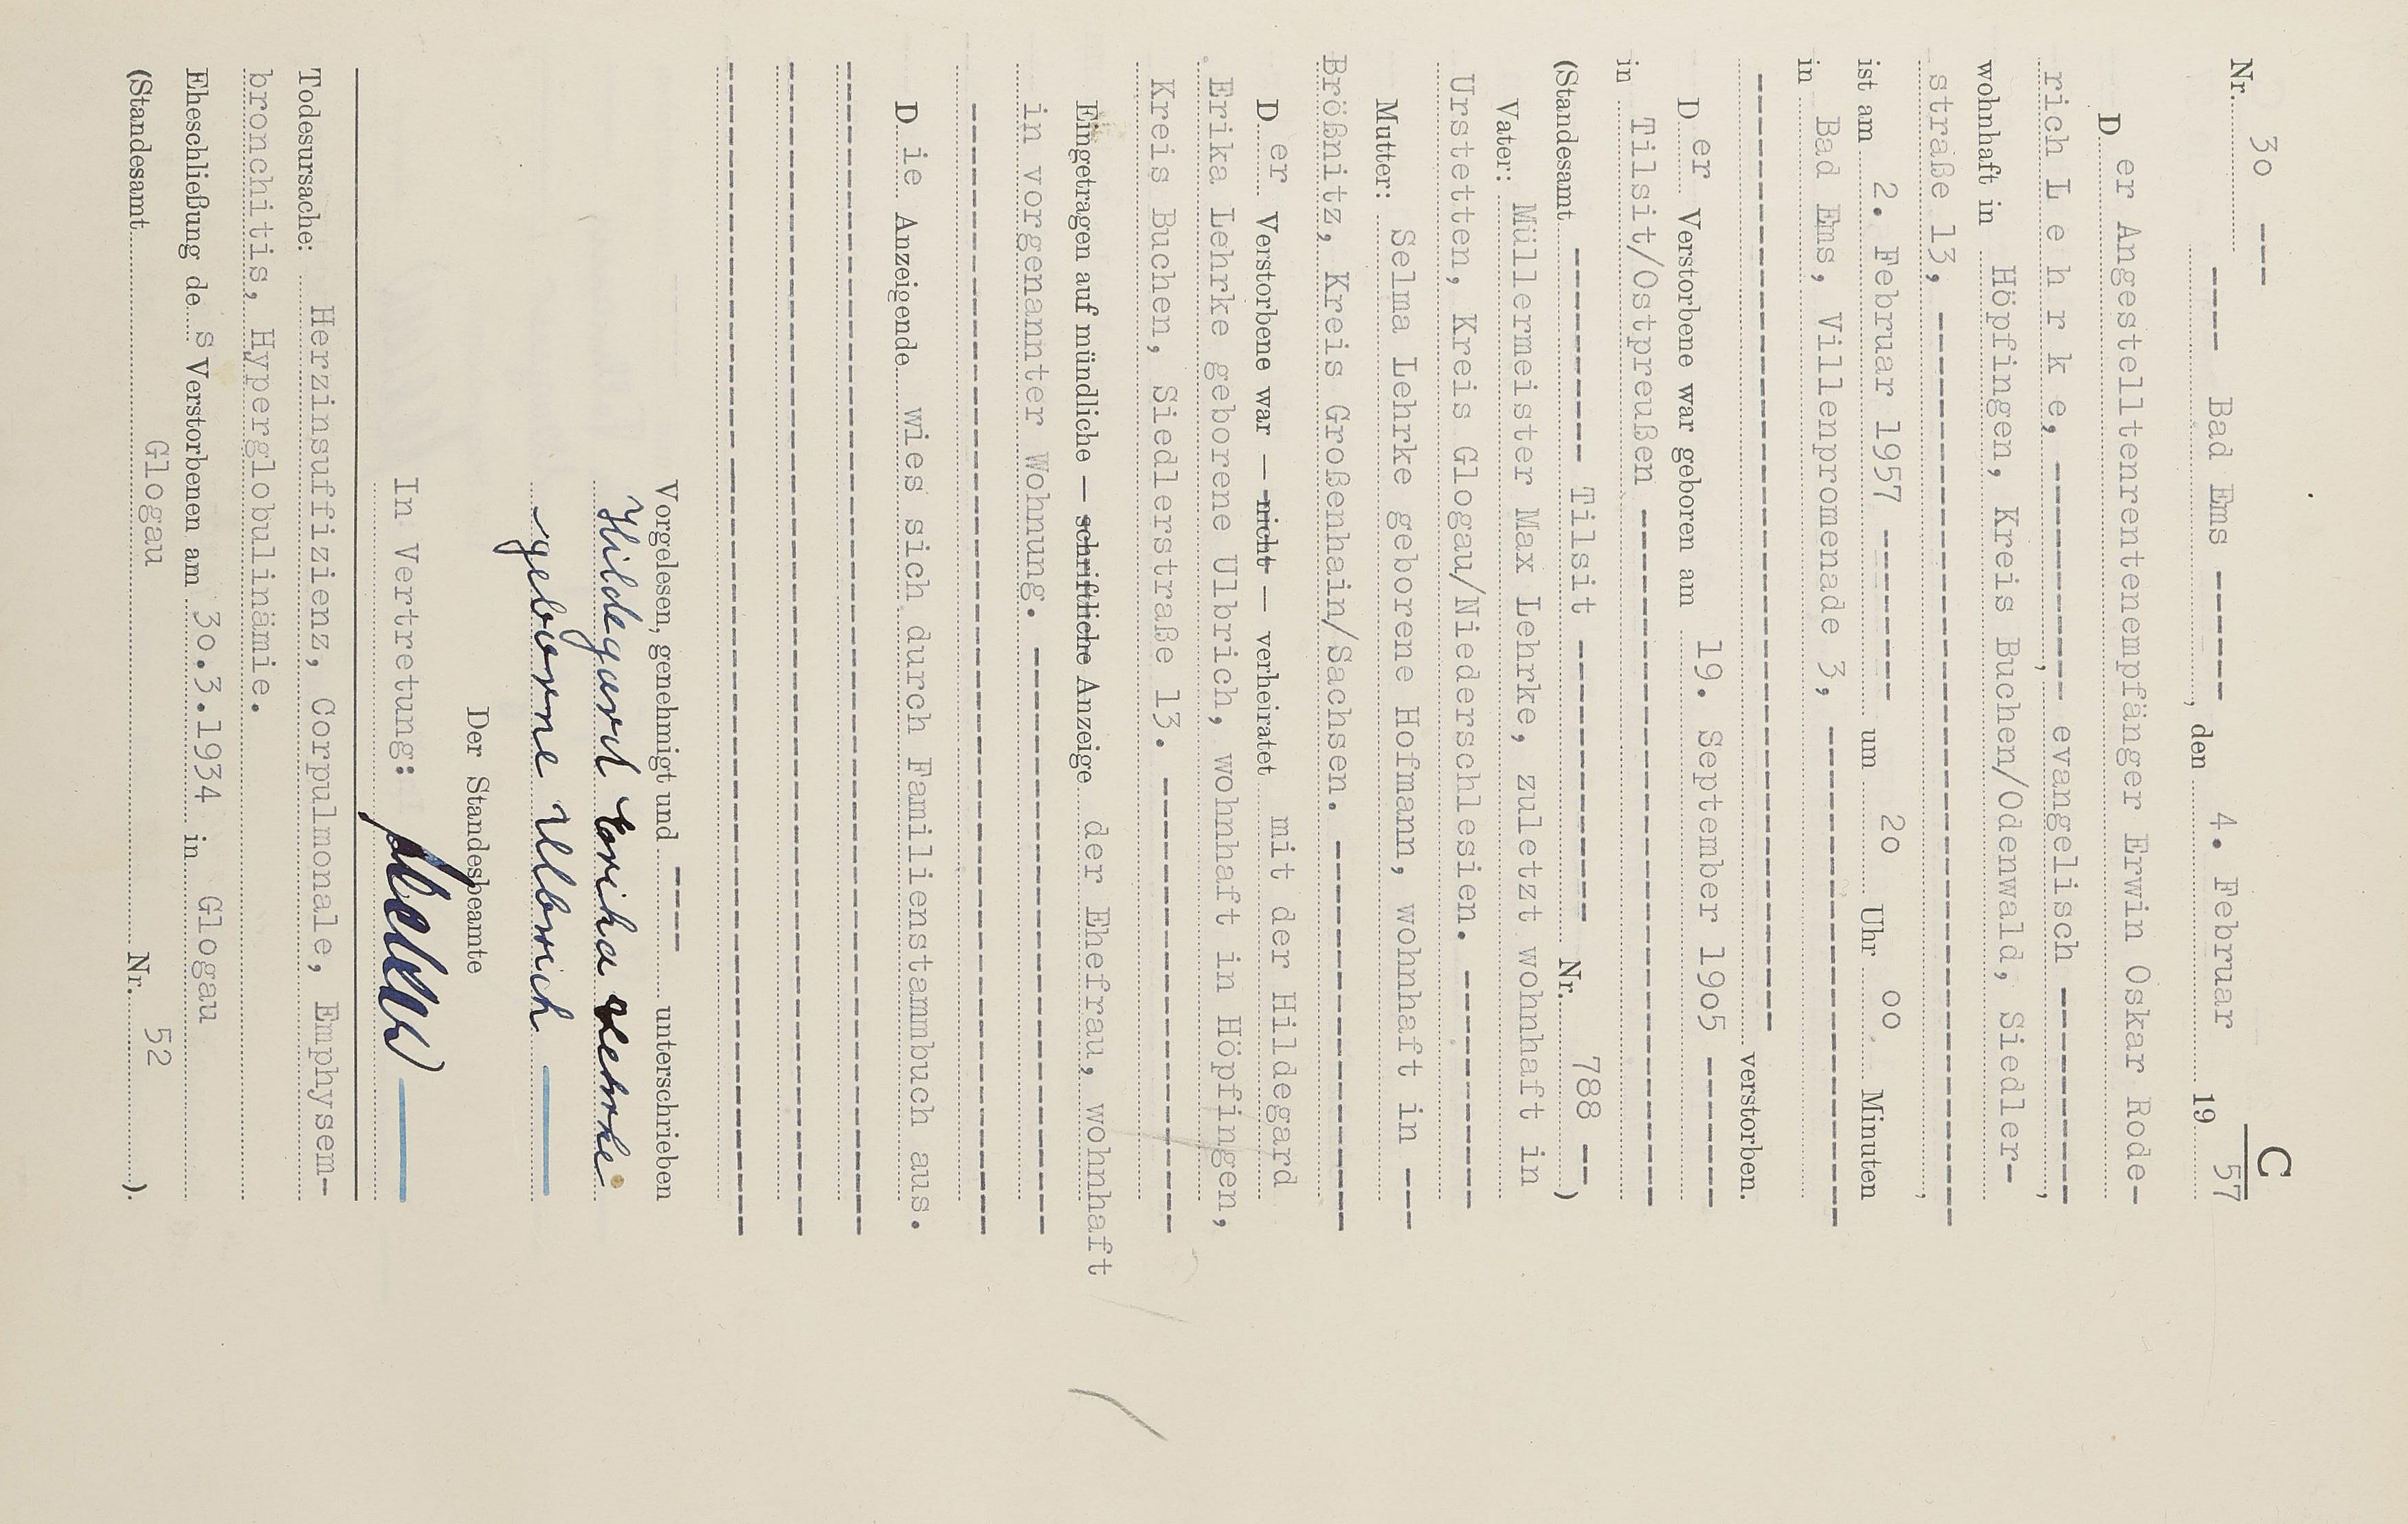 C
Nr. 30 ---
---- Bad Ems ------, den 4. Februar 1957
Der Angestelltenrentenempfänger Erwin Oskar Rode-
rich L e h r k e, -----------, evangelisch ----------,
wohnhaft in Höpfingen, Kreis Buchen/Odenwald, Siedler-
straße 13, ------------------------------------------,
ist am 2. Februar 1957 -------- um 20 Uhr 00 Minuten
in Bad Ems, Villenpromenade 3, ------------------------
------------------------------------------- verstorben.
Der Verstorbene war geboren am 19. September 1905 -------
in Tilsit/Ostpreußen --------------------------------
(Standesamt ---------- Tilsit ------------- Nr. 788 --)
Vater: Müllermeister Max Lehrke, zuletzt wohnhaft in
Urstetten, Kreis Glogau/Niederschlesien. -----------
Mutter: Selma Lehrke geborene Hofmann, wohnhaft in ---
Brößnitz, Kreis Großenhain/Sachsen. ------------------
Der Verstorbene war — nicht — verheiratet mit der Hildegard
Erika Lehrke geborene Ulbrich, wohnhaft in Höpfingen,
Kreis Buchen, Siedlerstraße 13. ---------------------
Eingetragen auf mündliche — schriftliche Anzeige der Ehefrau, wohnhaft
in vorgenannter Wohnung. ---------------------------
-----------------------------------------------------
Die Anzeigende wies sich durch Familienstammbuch aus.
-----------------------------------------------------
-----------------------------------------------------
-----------------------------------------------------
Vorgelesen, genehmigt und ---- unterschrieben
Hildegard Erika Lehrke
geborne Ulbrich
Der Standesbeamte
In Vertretung:
Todesursache: Herzinsuffizienz, Corpulmonale, Emphysem-
bronchitis, Hyperglobulinämie.
Eheschließung des Verstorbenen am 30.3.1934 in Glogau
(Standesamt Glogau Nr. 52 ).